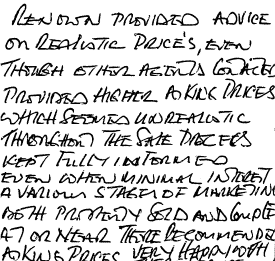 RENOWN PROVIDED ADVICE
ON REALISTIC PRICE'S, EVEN
THOUGH OTHER AGENTS CONTACTED
PROVIDED HIGHER ASKING PRICES
WHICH SEEMED UNREALISTIC
THROUGHOUT THE SALE PROCESS
KEPT FULLY INFORMED
EVEN WHEN MINIMAL INTEREST
A VARIOUS STAGES OF MARKETING
BOTH PROPERTY SOLD AND COMPLETE
AT OR NEAR THERE RECOMMENDED
ASKING PRICES VERY HAPPY WITH